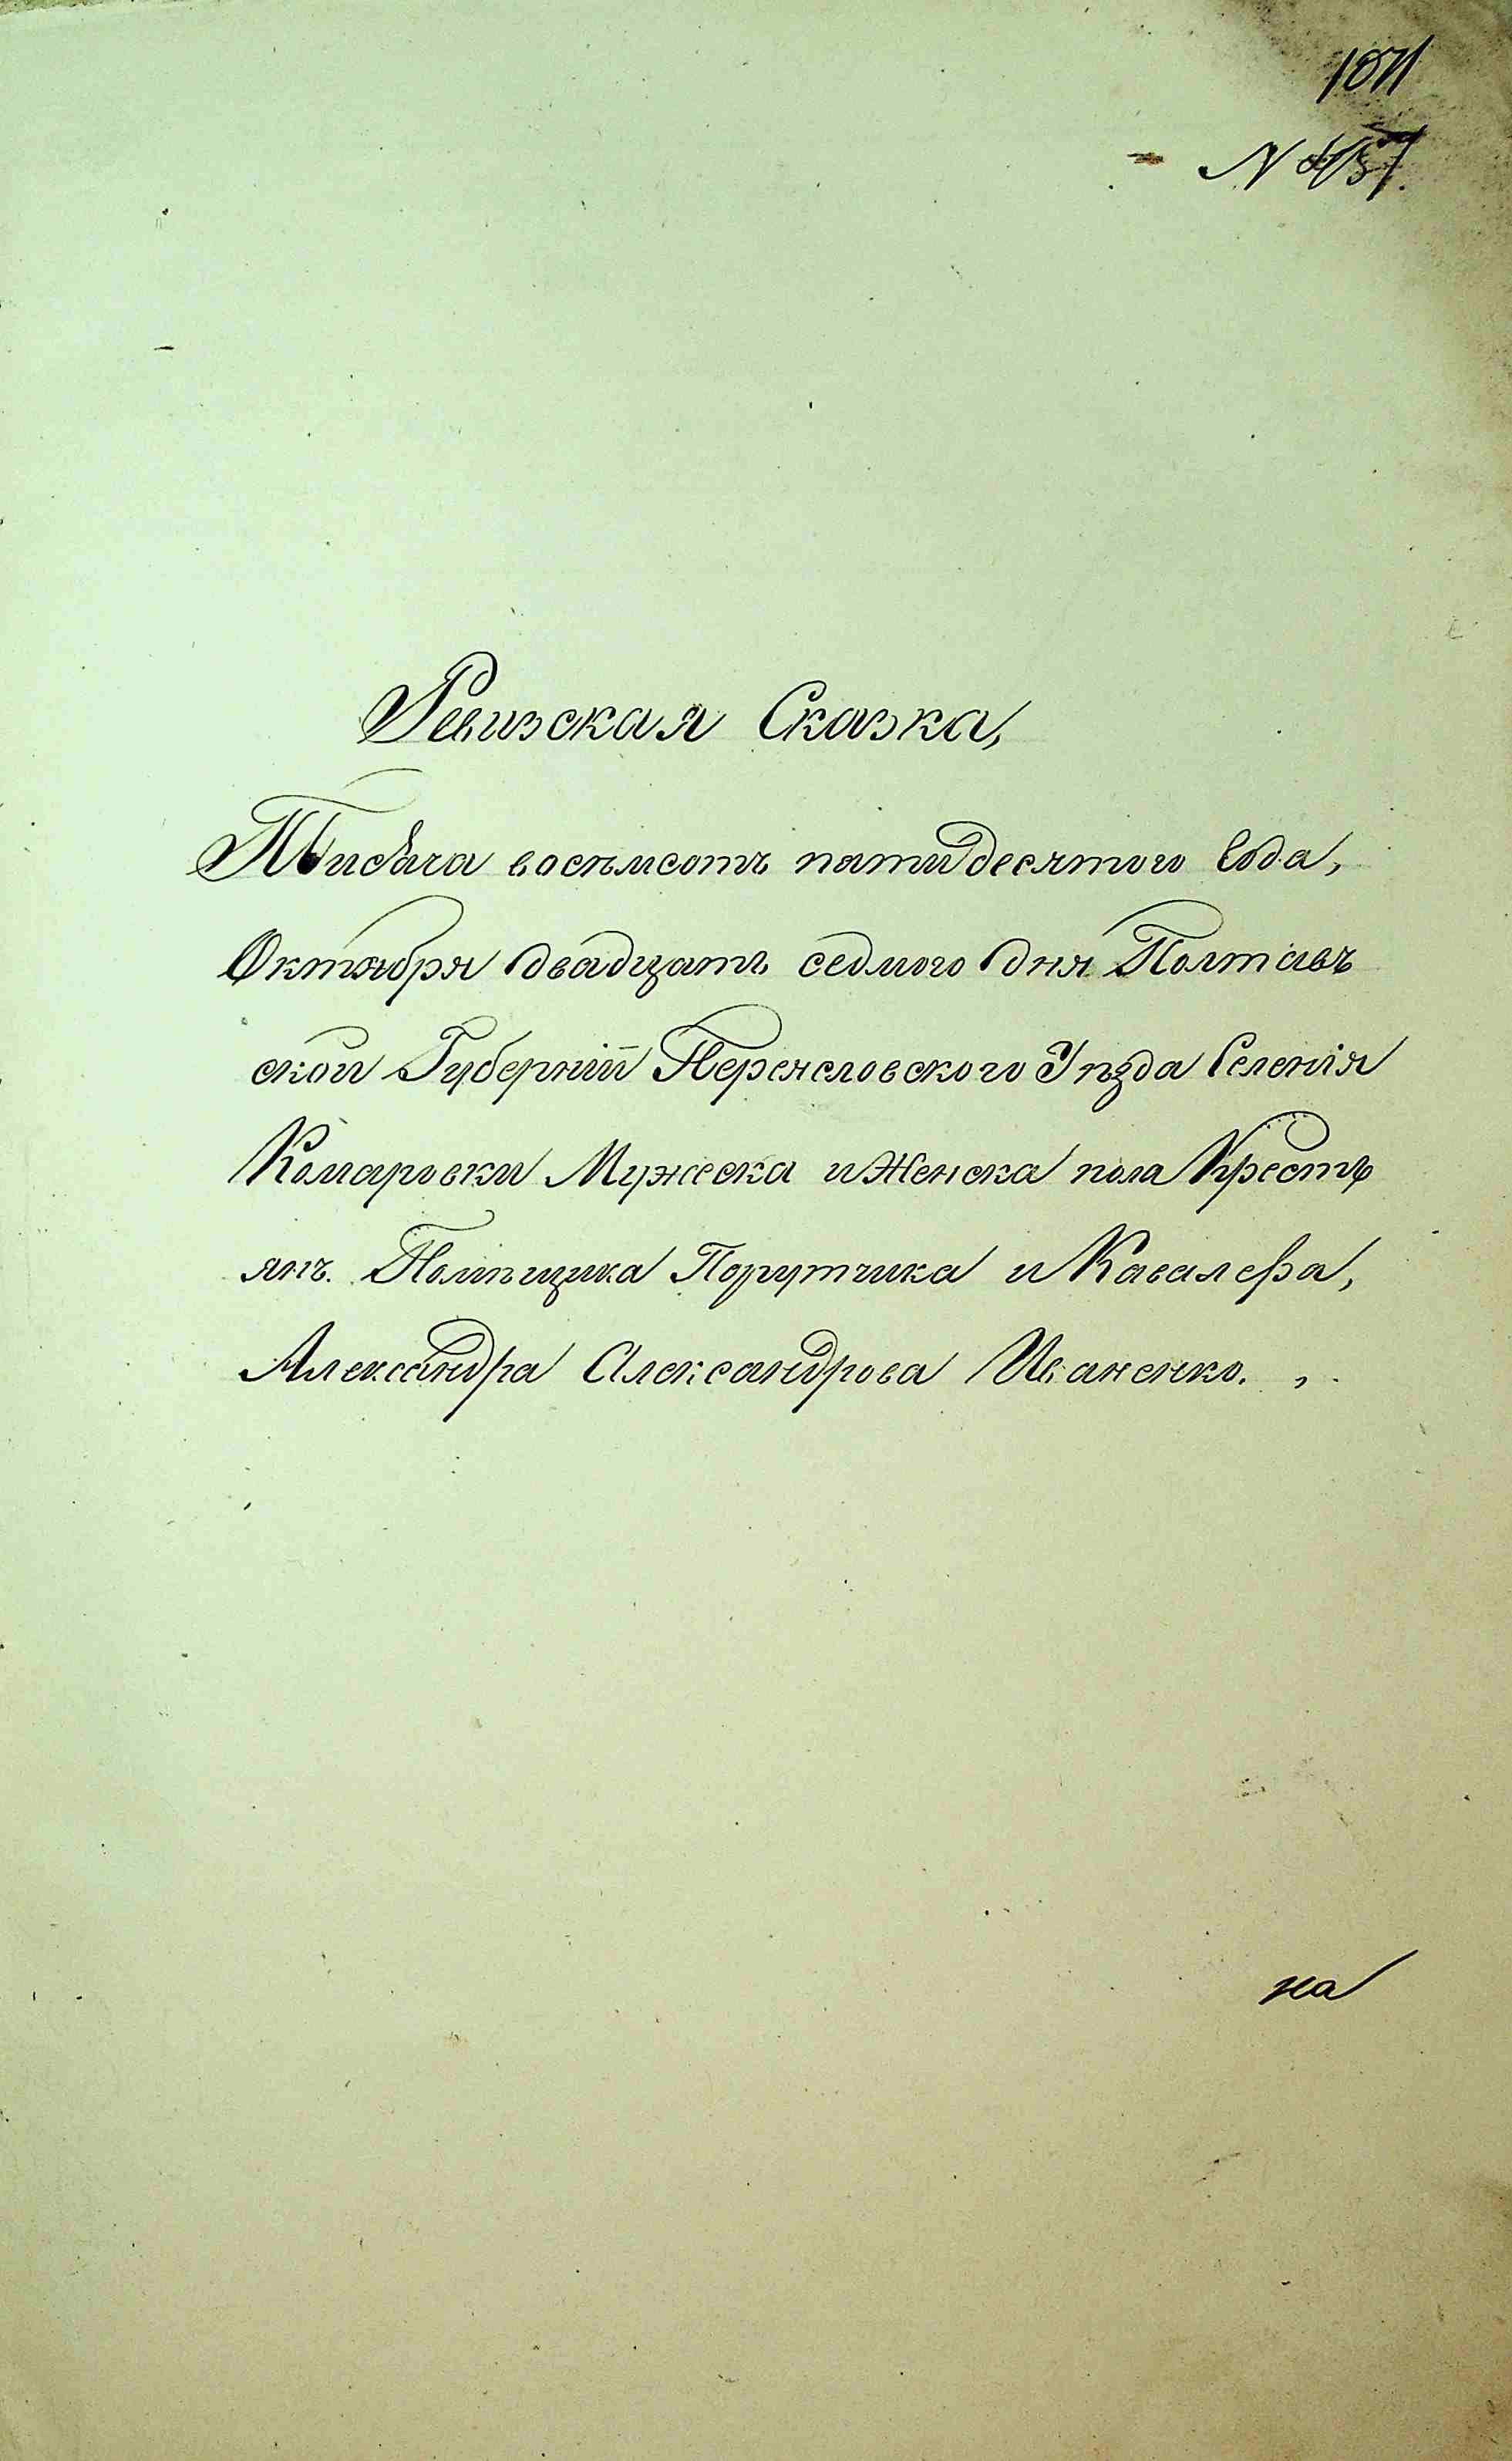 1071
N 457.
Ревизская Сказка,
Тисяча восемсотъ пятидесятого Года,
Октября двадцать седмого дня Полтавъ
ской Губерніи Переясловского Уѣзда Селенія
Комаровки Мужеска и Женска пола Крестъ
янъ. Помѣщика Порутчика и Кавалера,
Александра Александрова Иваненко.
на